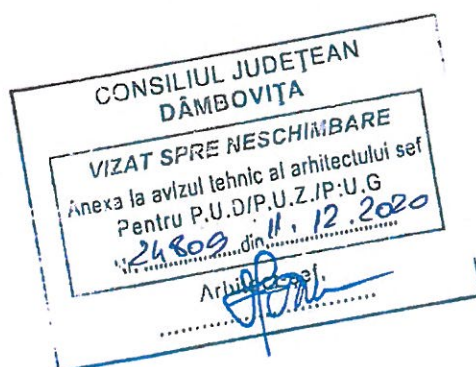 CONSILIUL JUDEȚEAN
DÂMBOVIȚA
VIZAT SPRE NESCHIMBARE
Anexa la avizul tehnic al arhitectului sef
Pentru P.U.D/P.U.Z./P.U.G
24809 din 11.12.2020